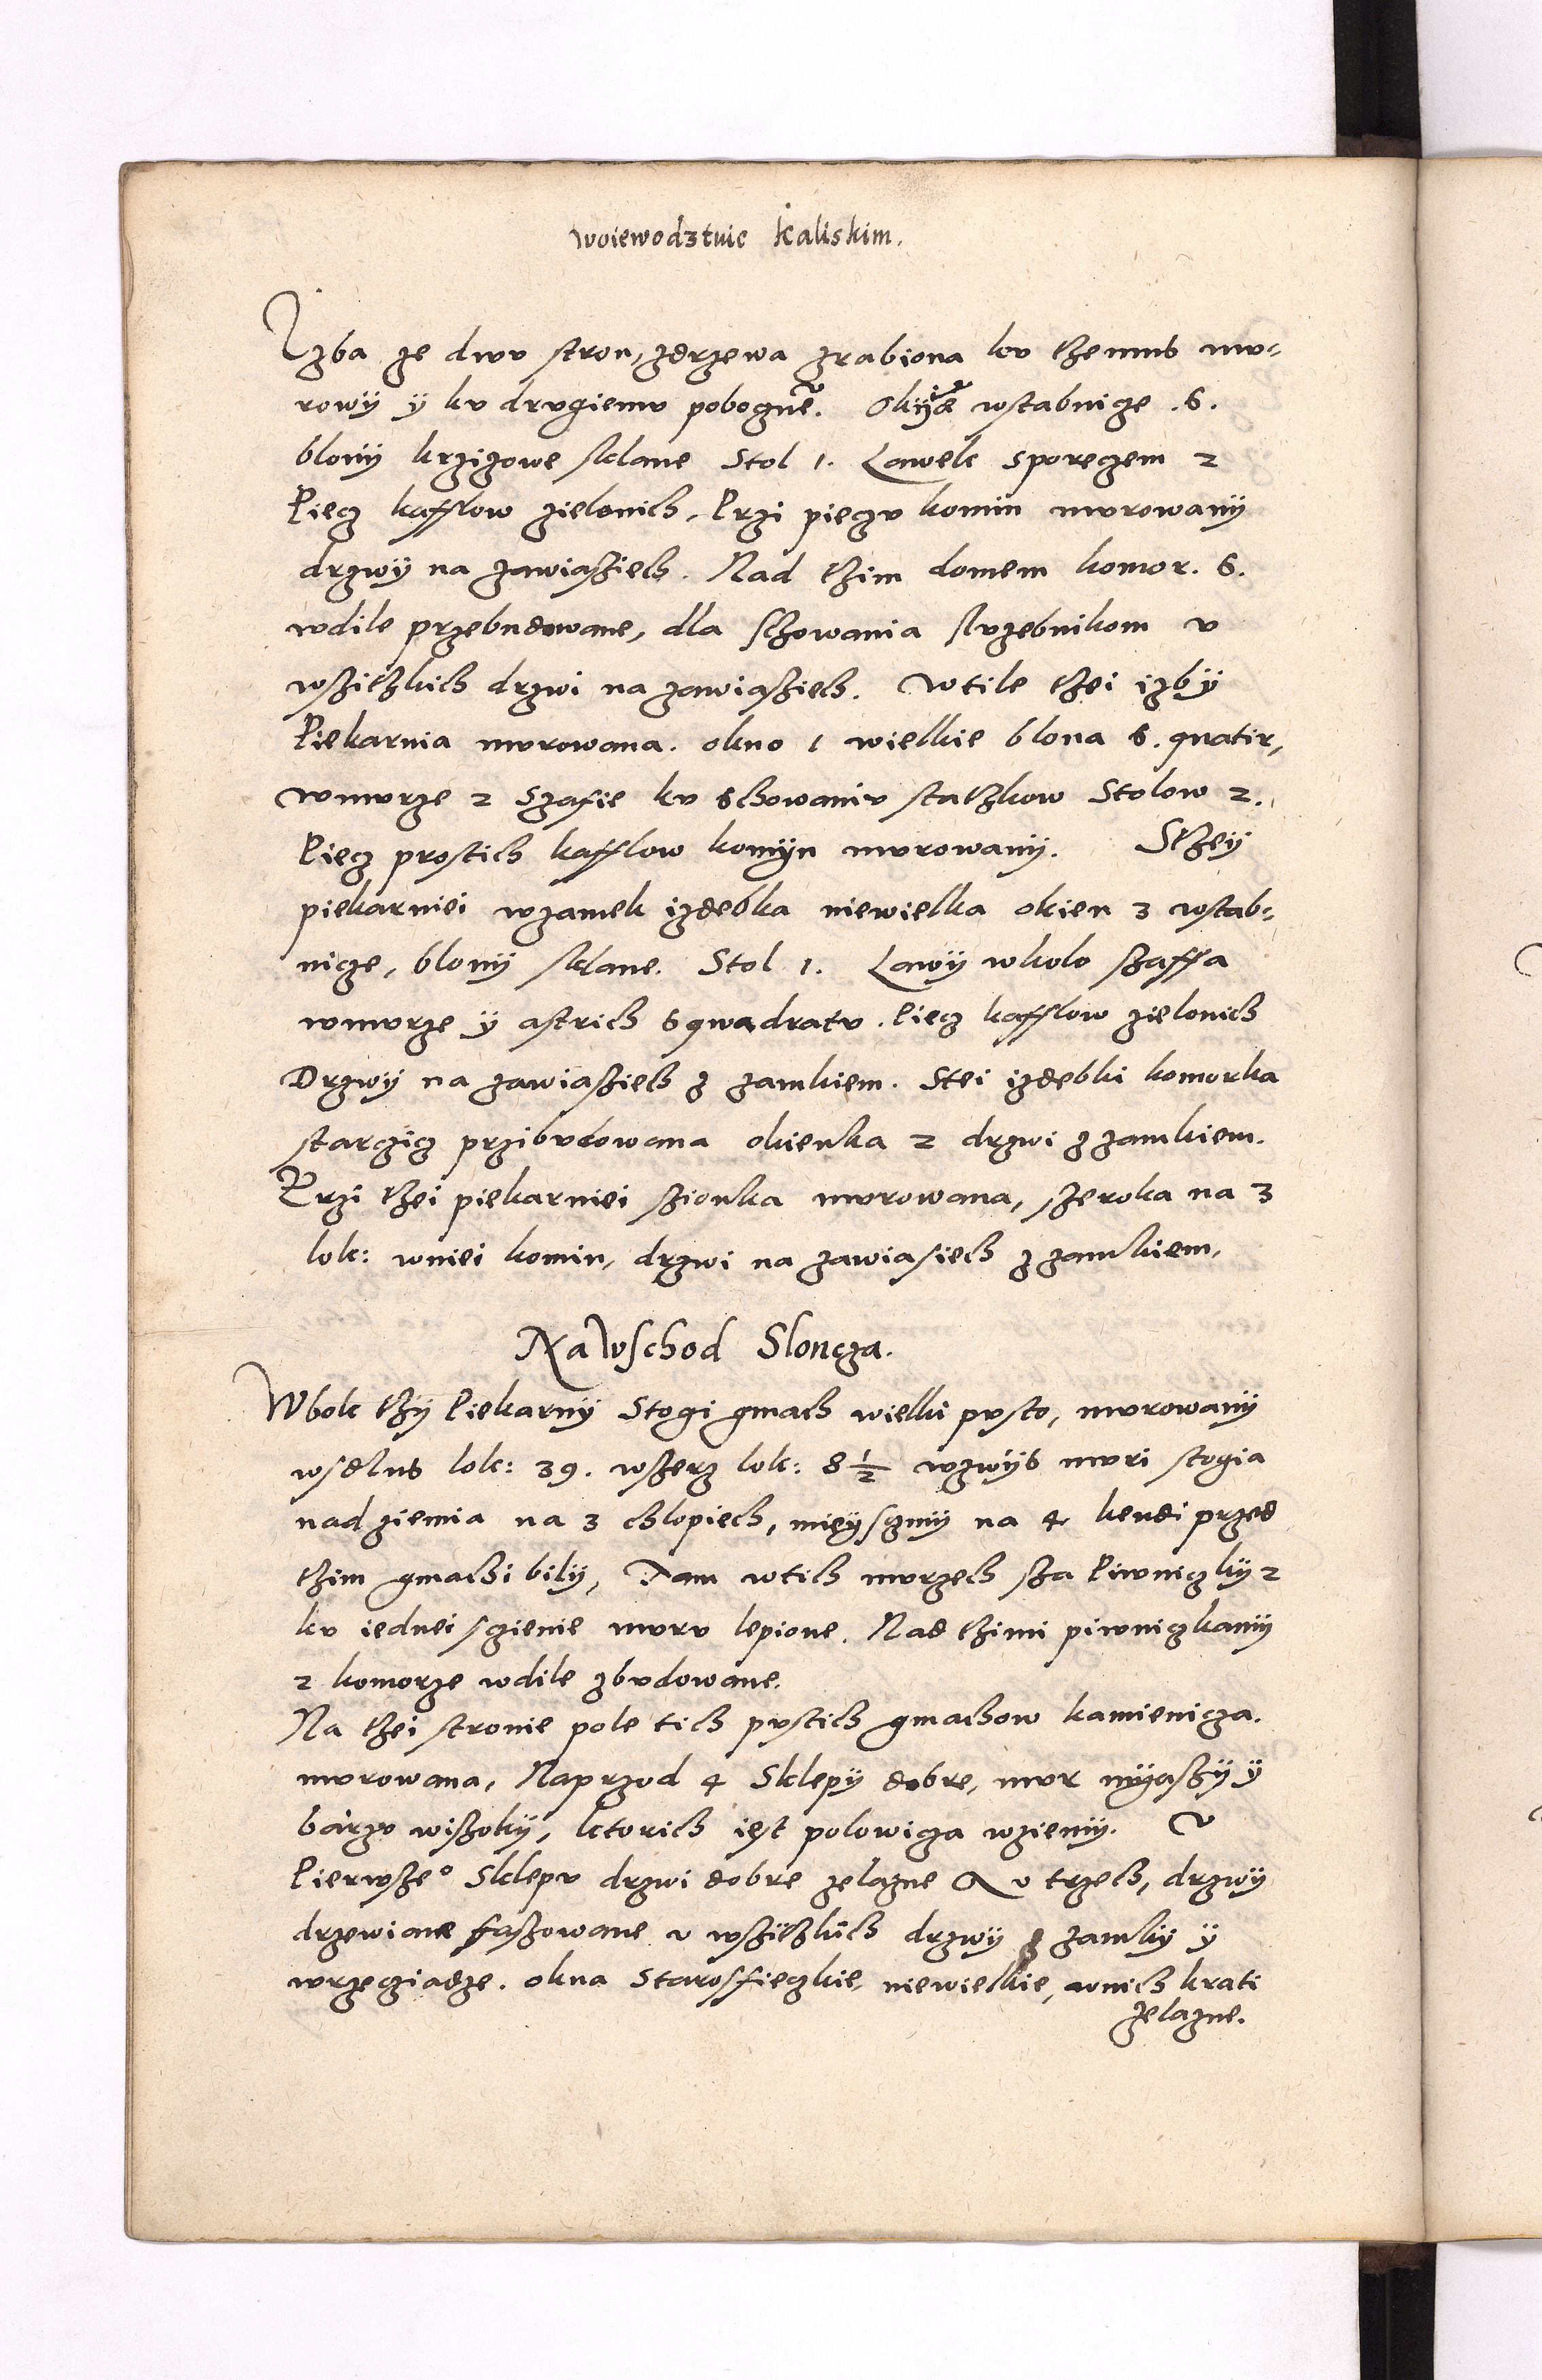 woiewodztwie kaliskim.
Izba ze dwu stron, zdrzewa zrabiona ku themus mu-
rowy y ku drugiemu pobognē. Okyna wstabnize .6.
blony krzizowe sklane Stol 1. Lawek sporeczem 2
Piecz kafflow zielonich, Przi pieczu komin murowany
drzwy na zawiaßiech. Nad thim domem komor. 6.
wdile przebudowane, dla schowania sluzebnikom u
wßithkich drzwi na zawiaßiech. Wtile thei izby
Piekarnia murowana. okno 1 wielkie blona 6. quatir,
wmurze 2 Szafie ku schowaniu statzkow Stolow 2.
Piecz prostich kafflow komyn murowany. Sthey
piekarniei wzamek izdebka niewielka okien 3 wstab-
nicze, blony sklane. Stol 1. Lawy wkolo szaffa
wmurze y astrich sqwadratu. Piecz kafflow zielonich
Drzwy na zawiaßiech z zamkiem. Stei izdebki komorka
starczicz przibudowana okienka 2 drzwi z zamkiem.
Przi thei piekarniei szionka murowana, szeroka na 3
lok: wniei komin, drzwi na zawiasiech z zamkiem,
Na Wschod Sloncza.
Wbok thy Piekarny Stogi gmach wielki pusto, murowany
wsdlus lok: 39. wszerz lok: 8 1/2 wzwys muri stogia
nad ziemia na 3 chlopiech, mieysczmy na 4 kendi przed
thim gmachi bily, Tam wtich murzech sza Piwniczky 2
ku iednei sczienie muru lepione. Nad thimi piwniczkamy
2 komorze wdile zbudowane.
Na thei stronie pole tich pustich gmachow kamienicza.
murowana, Naprzod 4 Sklepy dobre, mur myaszy y
barzo wißoky, ktorich iest polowicza wziemy. U
Pierwsze° Sklepu drzwi dobre zelazne A u trzech, drzwy
drzewiane faszowane u wßithkich drzwy z zamky y
wrzecziadze. okna Starosfieczkie, niewielkie, wnich krati
zelazne.